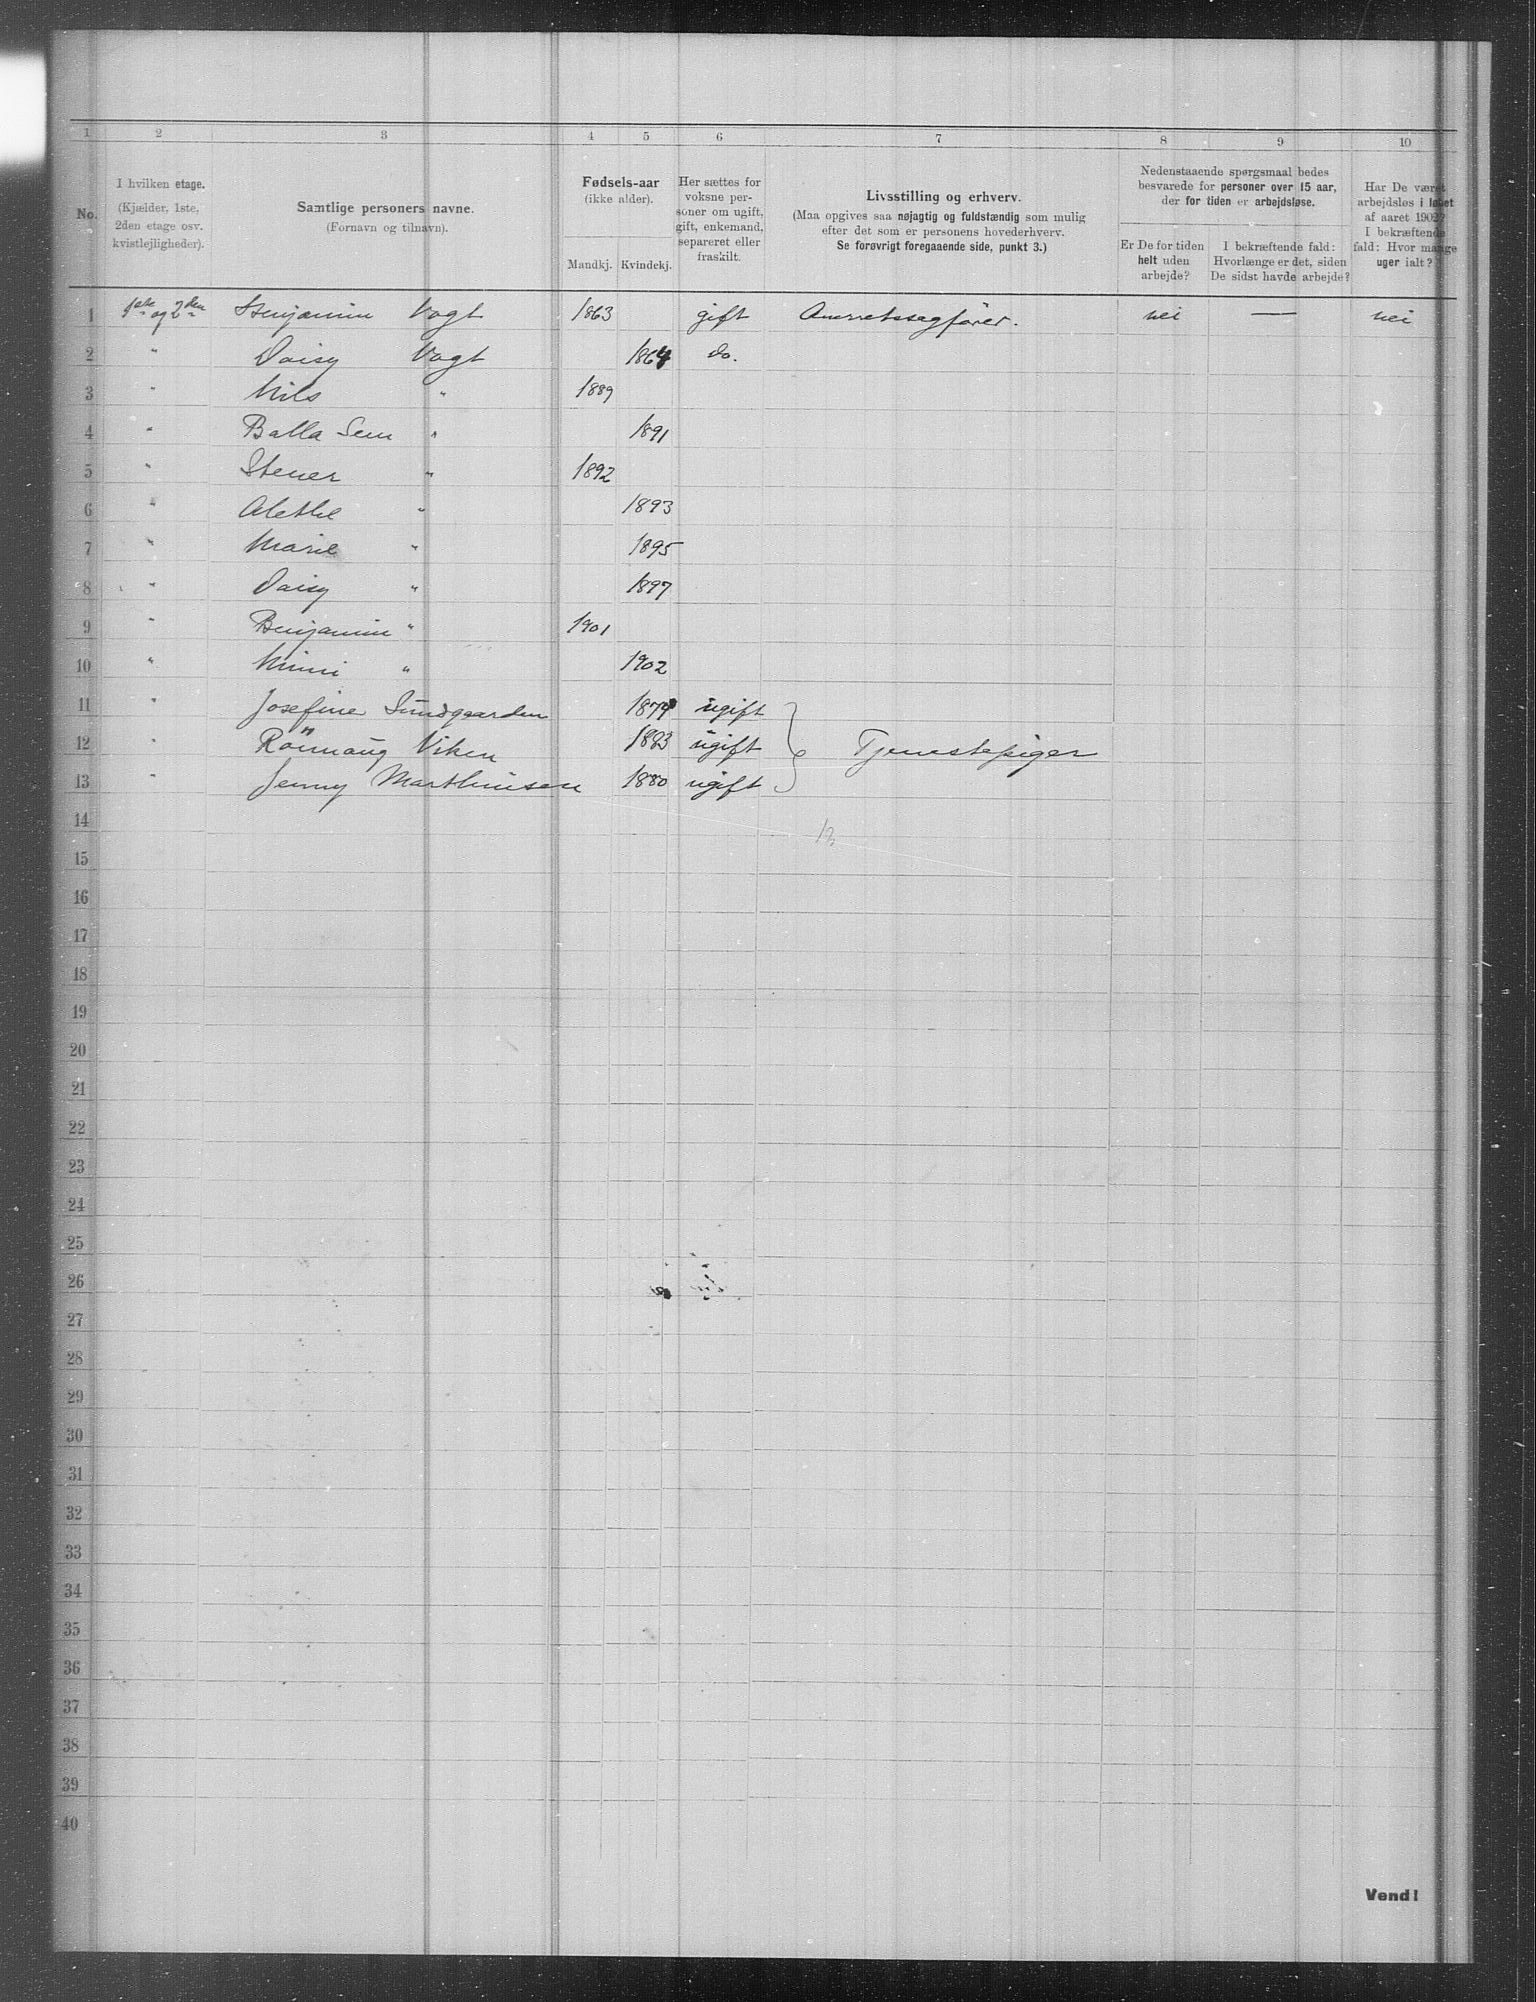 1 2 3 4 5 6 7 8 9 10
No.
I hvilken etage.
(Kjælder, 1ste,
2den etage osv.
kvistlejligheder).
Samtlige personers navne.
(Fornavn og tilnavn).
Fødsels-aar
(ikke alder).
Mandkj. Kvindekj.
Her sættes for
voksne per-
soner om ugift,
gift, enkemand,
separeret eller
fraskilt.
Livsstilling og erhverv.
(Maa opgives saa nøjagtig og fuldstændig som mulig
efter det som er personens hovederhverv.
Se forøvrigt foregaaende side, punkt 3.)
Nedenstaaende spørgsmaal bedes
besvarede for personer over 15 aar,
der for tiden er arbejdsløse.
Er De for tiden
helt uden
arbejde?
I bekræftende fald:
Hvorlænge er det, siden
De sidst havde arbejde?
Har De været
arbejdsløs i løbet
af aaret 1902?
I bekræftende
fald: Hvor mange
uger ialt?
1 1ste og 2den Benjamin Vogt 1863 gift Overretssagfører. nei — nei
2 " Daisy Vogt 1864 do.
3 " Nils " 1889
4 " Balla Sem " 1891
5 " Stener " 1892
6 " Alethe " 1893
7 " Marie " 1895
8 " Daisy " 1897
9 " Benjamin " 1901
10 " Mimi " 1902
11 " Josefine Sundgaarden 1874 ugift
12 " Rønnaug Viken 1883 ugift } Tjenestepiger
13 " Jenny Marthinsen 1880 ugift
14
15
16
17
18
19
20
21
22
23
24
25
26
27
28
29
30
31
32
33
34
35
36
37
38
39
40
Vend!